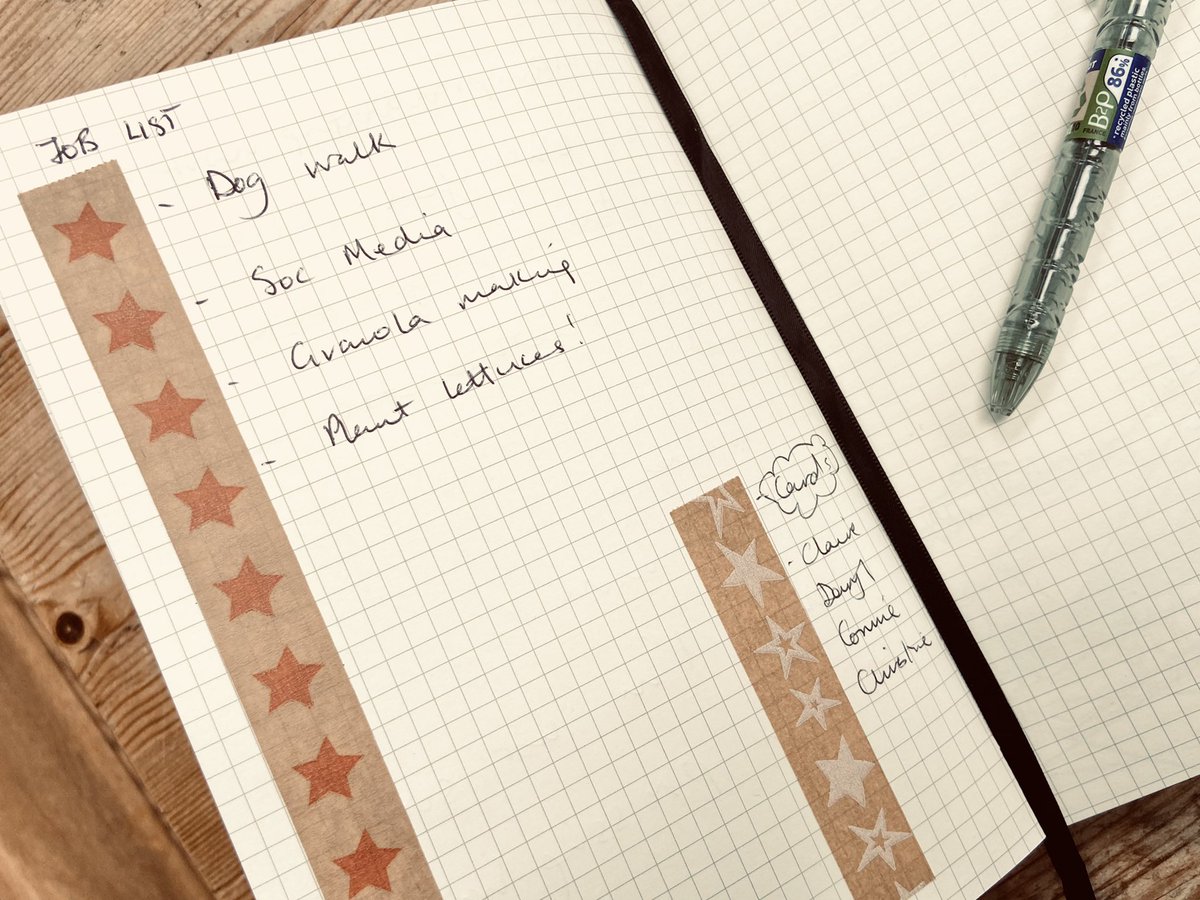 JOB LIST
- Dog walk
- Soc Media
- Granola making
- Plant lettuces!
Cards
- Claire
Daryl
Connie
Christine
B2P
86%
recycled plastic
mainly from bottles
FRANCE